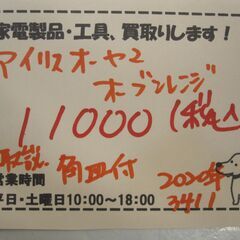 家電製品・工具、買取りします!
アイリスオーヤマ
オーブンレンジ
11000(税込)
取説、角皿付
営業時間
平日・土曜日10:00〜18:00
2020年
3411